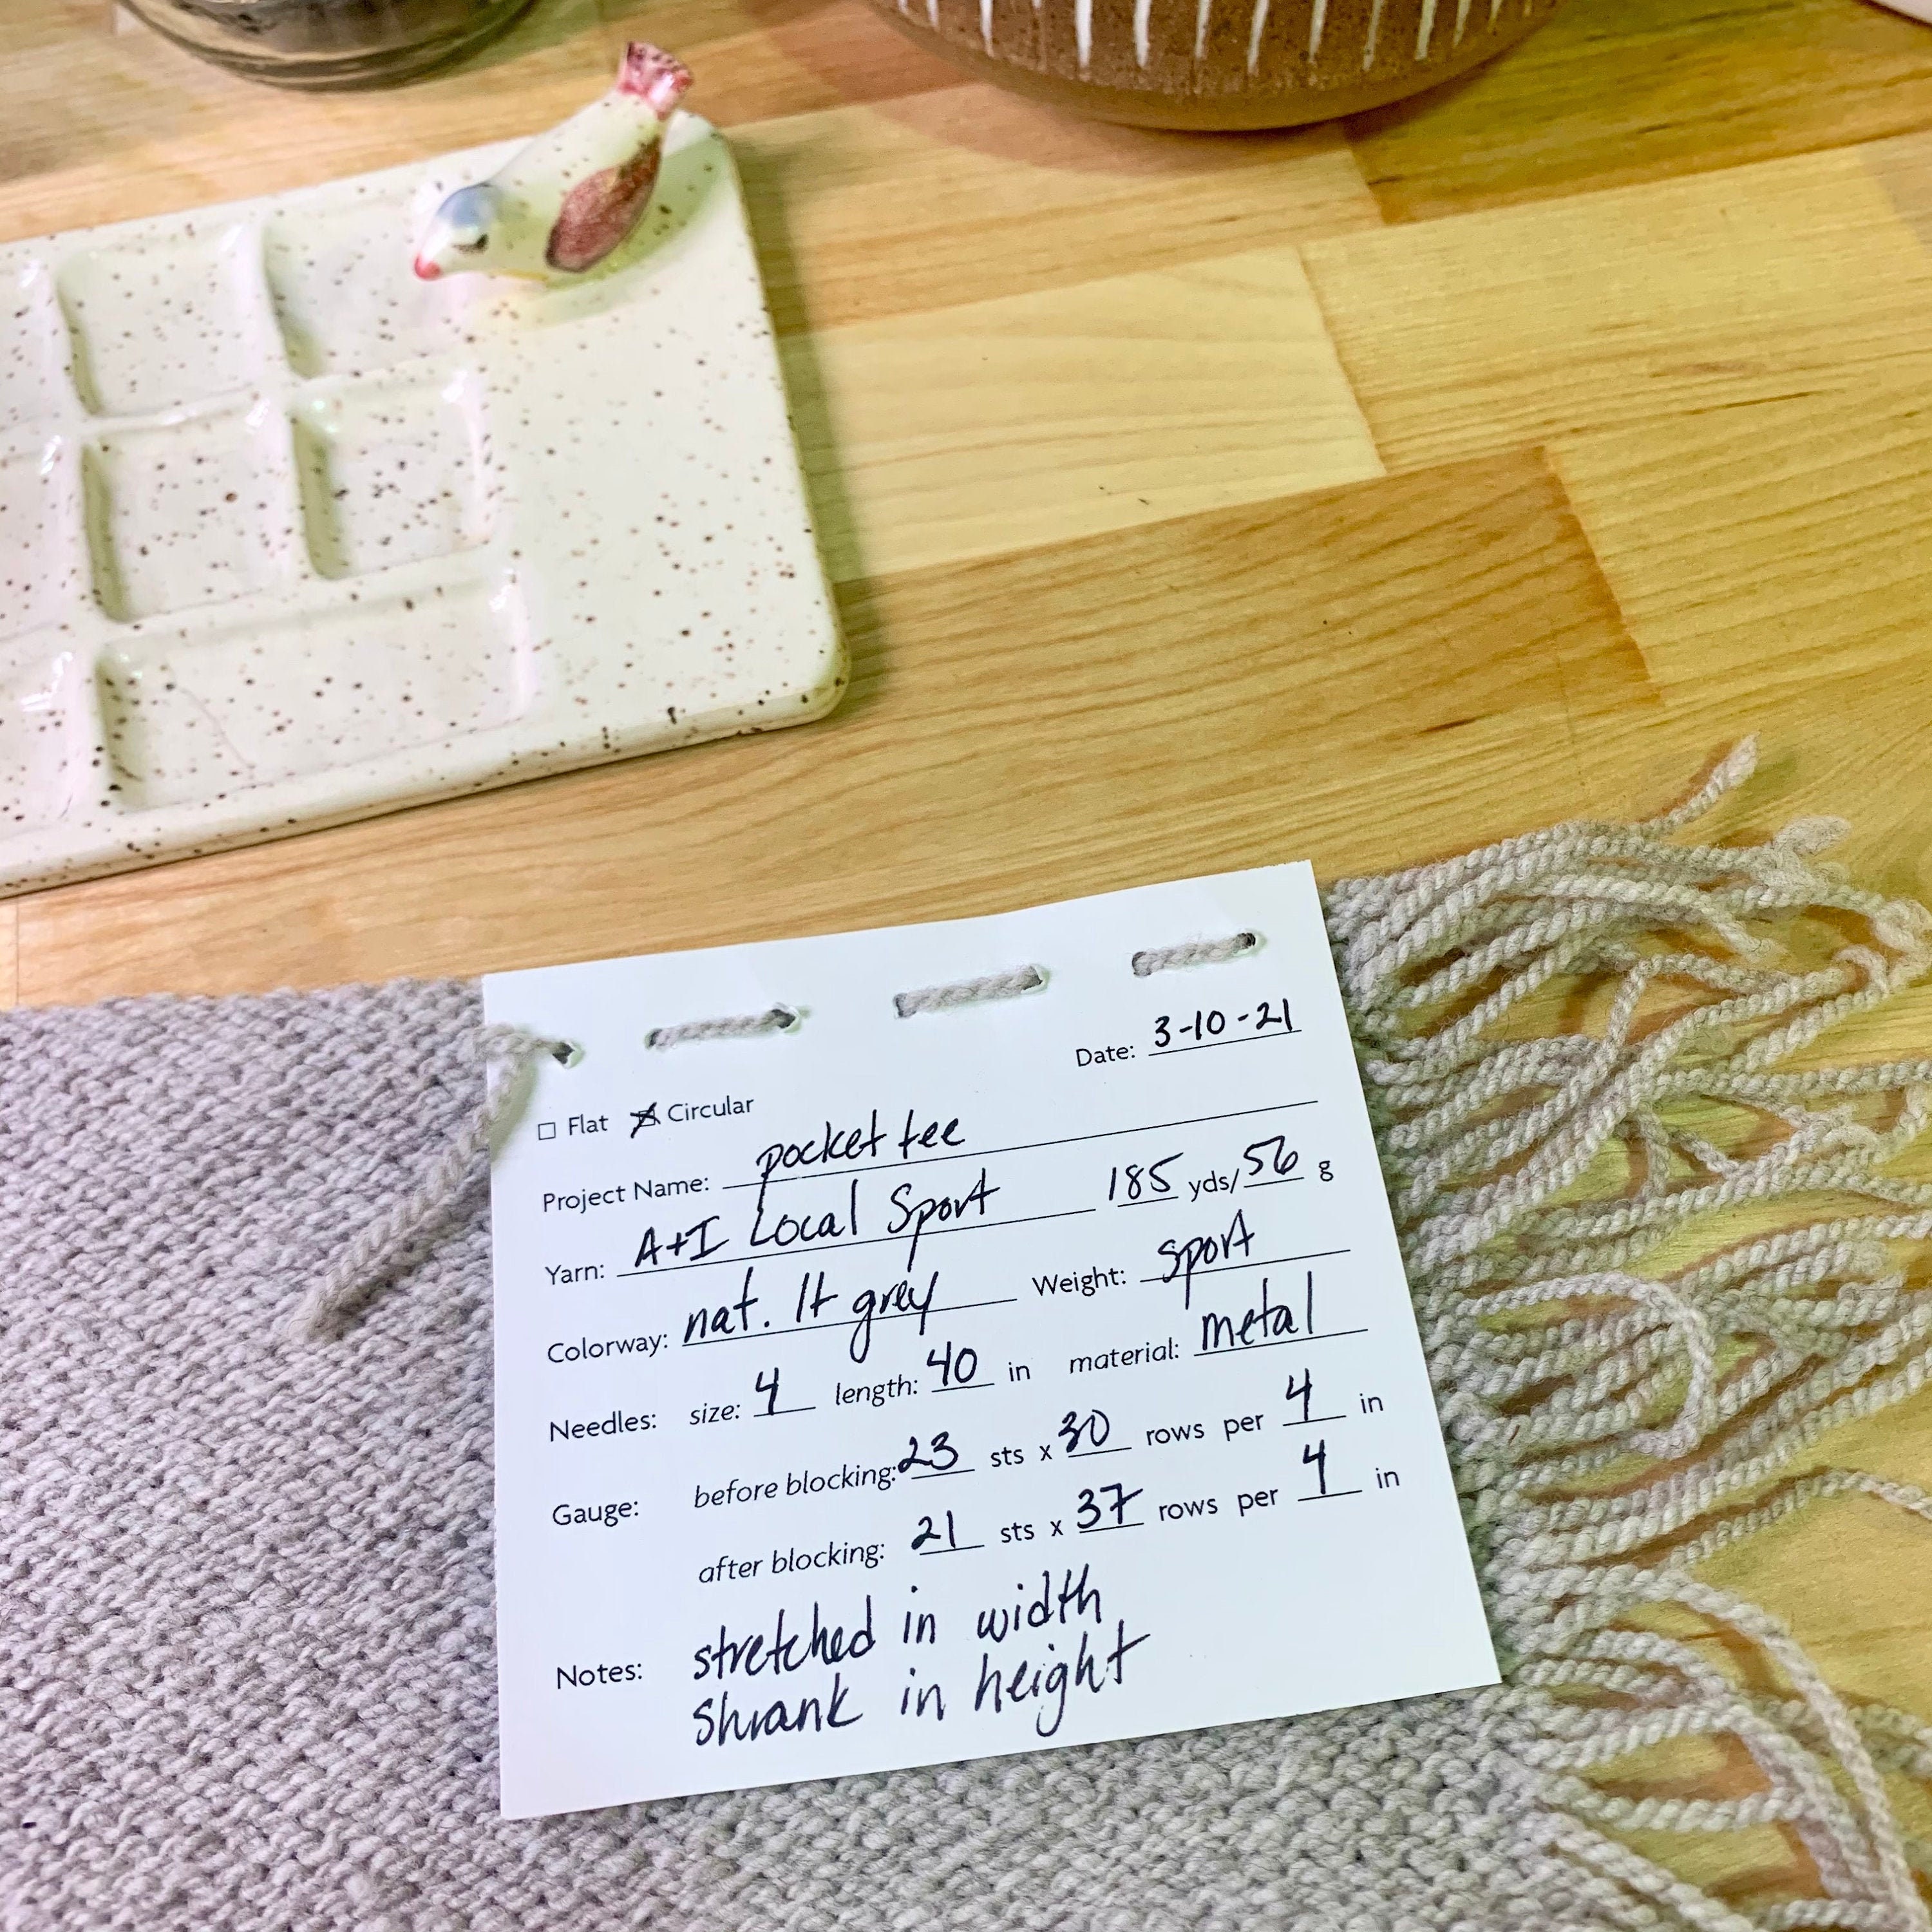 Date: 3-10-21
☐ Flat ☒ Circular
Project Name: pocket tee
Yarn: A+I Local Sport 185 yds/56 g
Colorway: nat. lt grey Weight: sport
Needles: size: 4 length: 40 in material: metal
Gauge: before blocking: 23 sts x 30 rows per 4 in
after blocking: 21 sts x 37 rows per 4 in
Notes: stretched in width
shrank in height